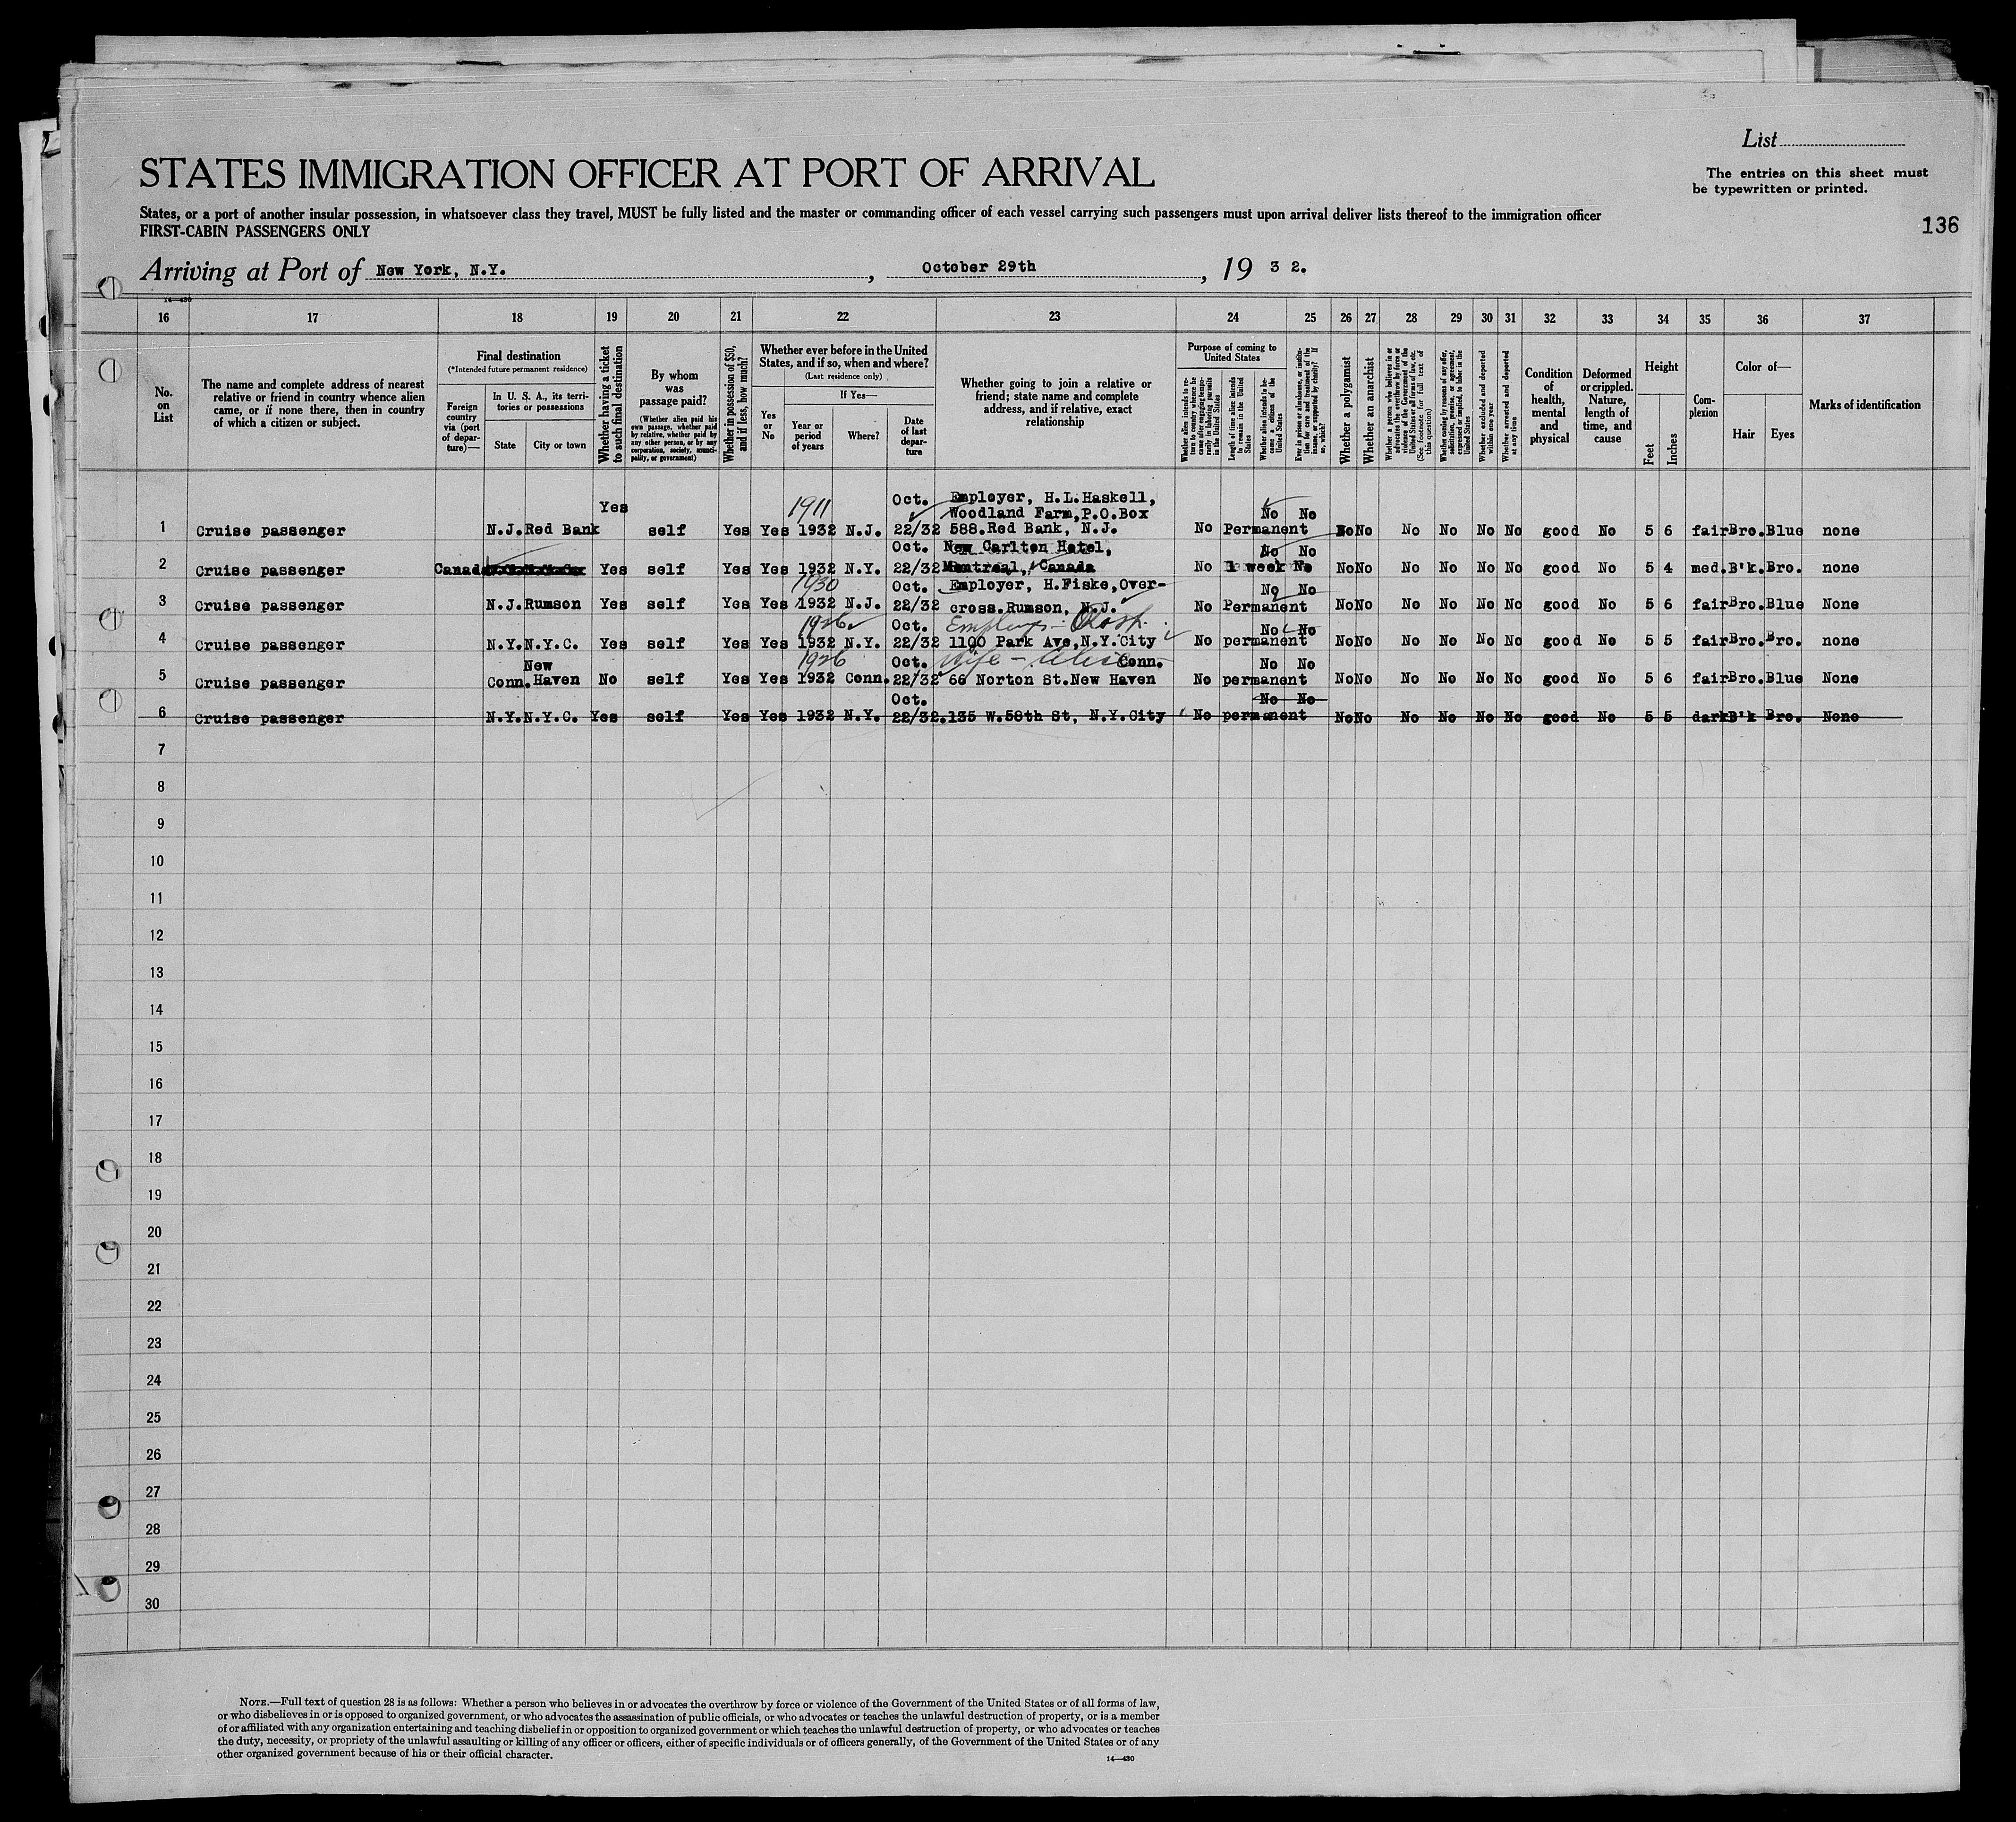 List
STATES IMMIGRATION OFFICER AT PORT OF ARRIVAL
The entries on this sheet must
be typewritten or printed.
States, or a port of another insular possession, in whatsoever class they travel, MUST be fully listed and the master or commanding officer of each vessel carrying such passengers must upon arrival deliver lists thereof to the immigration officer
FIRST-CABIN PASSENGERS ONLY
136
Arriving at Port of New York, N.Y. , October 29th , 19 3 2.
14—430
16 17 18 19 20 21 22 23 24 25 26 27 28 29 30 31 32 33 34 35 36 37
No. on List
The name and complete address of nearest
relative or friend in country whence alien
came, or if none there, then in country
of which a citizen or subject.
Final destination
(*Intended future permanent residence)
Foreign
country
via (port
of depar-
ture)—
In U. S. A., its terri-
tories or possessions
State City or town
Whether having a ticket
to such final destination
By whom
was
passage paid?
(Whether alien paid his
own passage, whether paid
by relative, whether paid by
any other person, or by any
corporation, society, munici-
pality, or government)
Whether in possession of $50,
and if less, how much?
Whether ever before in the United
States, and if so, when and where?
(Last residence only)
Yes
or
No
If Yes—
Year or
period
of years
Where?
Date
of last
depar-
ture
Whether going to join a relative or
friend; state name and complete
address, and if relative, exact
relationship
Purpose of coming to
United States
Whether alien intends to re-
turn to country whence he
came after engaging tempo-
rarily in laboring pursuits
in the United States
Length of time alien intends
to remain in the United
States
Whether alien intends to be-
come a citizen of the
United States
Ever in prison or almshouse, or institu-
tion for care and treatment of the
insane, or supported by charity? If
so, which?
Whether a polygamist
Whether an anarchist
Whether a person who believes in or
advocates the overthrow by force or
violence of the Government of the
United States or all forms of law, etc.
(See footnote for full text of
this question)
Whether coming by reason of any offer,
solicitation, promise, or agreement,
expressed or implied, to labor in the
United States
Whether excluded and deported
within one year
Whether arrested and deported
at any time
Condition
of
health,
mental
and
physical
Deformed
or crippled.
Nature,
length of
time, and
cause
Height
Feet Inches
Com-
plexion
Color of—
Hair Eyes
Marks of identification
Yes 1911 Oct. Employer, H.L.Haskell,
Woodland Farm,P.O.Box No No
1 Cruise passenger N.J. Red Bank self Yes Yes 1932 N.J. 22/32 588.Red Bank, N.J. No Permanent No No No No No No good No 5 6 fair Bro. Blue none
Oct. New Carlton Hotel, No No
2 Cruise passenger Canada Yes self Yes Yes 1932 N.Y. 22/32 Montreal, Canada No 1 week No No No No No No No good No 5 4 med. B'k. Bro. none
1930 Oct. Employer, H.Fiske,Over- No No
3 Cruise passenger N.J. Rumson Yes self Yes Yes 1932 N.J. 22/32 cross.Rumson, N.J. No Permanent No No No No No No good No 5 6 fair Bro. Blue None
1926 Oct. No No
4 Cruise passenger N.Y. N.Y.C. Yes self Yes Yes 1932 N.Y. 22/32 1100 Park Ave,N.Y.City No permanent No No No No No No good No 5 5 fair Bro. Bro. none
New 1926 Oct. Wife - Alice Conn. No No
5 Cruise passenger Conn. Haven No self Yes Yes 1932 Conn. 22/32 66 Norton St.New Haven No permanent No No No No No No good No 5 6 fair Bro. Blue None
Oct. No No
6 Cruise passenger N.Y. N.Y.C. Yes self Yes Yes 1932 N.Y. 22/32. 135 W.58th St, N.Y.City No permanent No No No No No No good No 5 5 dark B'k Bro. None
7
8
9
10
11
12
13
14
15
16
17
18
19
20
21
22
23
24
25
26
27
28
29
30
NOTE.—Full text of question 28 is as follows: Whether a person who believes in or advocates the overthrow by force or violence of the Government of the United States or of all forms of law,
or who disbelieves in or is opposed to organized government, or who advocates the assassination of public officials, or who advocates or teaches the unlawful destruction of property, or is a member
of or affiliated with any organization entertaining and teaching disbelief in or opposition to organized government or which teaches the unlawful destruction of property, or who advocates or teaches
the duty, necessity, or propriety of the unlawful assaulting or killing of any officer or officers, either of specific individuals or of officers generally, of the Government of the United States or of any
other organized government because of his or their official character.
14—430